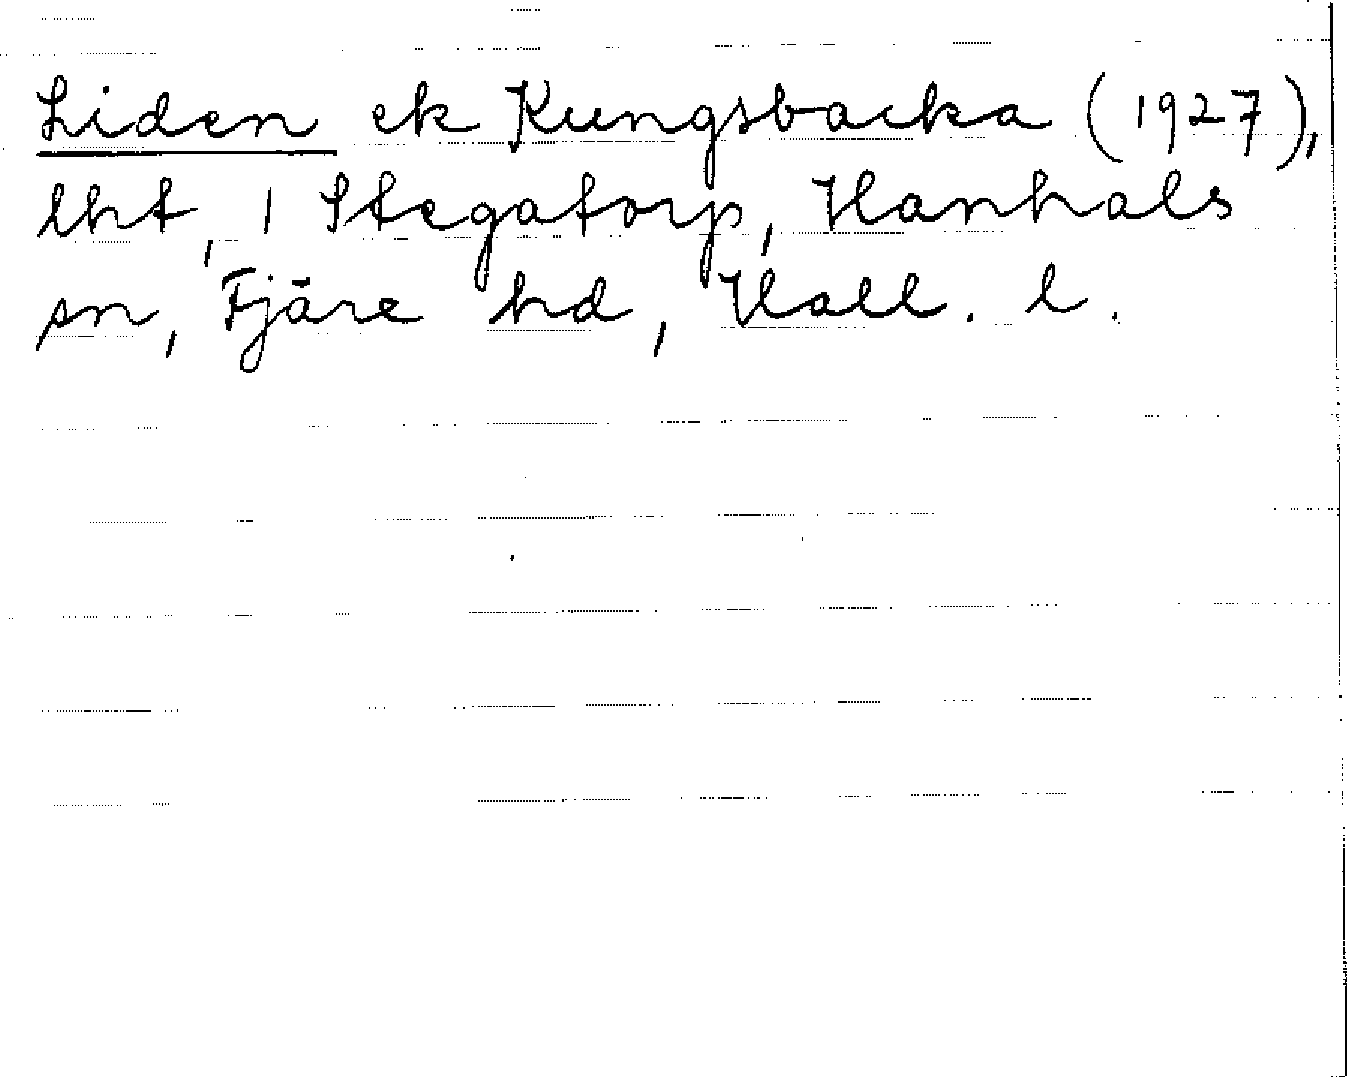 Liden ek Kungsbacka (1927),
lht, 1 Stegatorp, Hanhals
sn, Fjäre hd, Hall. l.